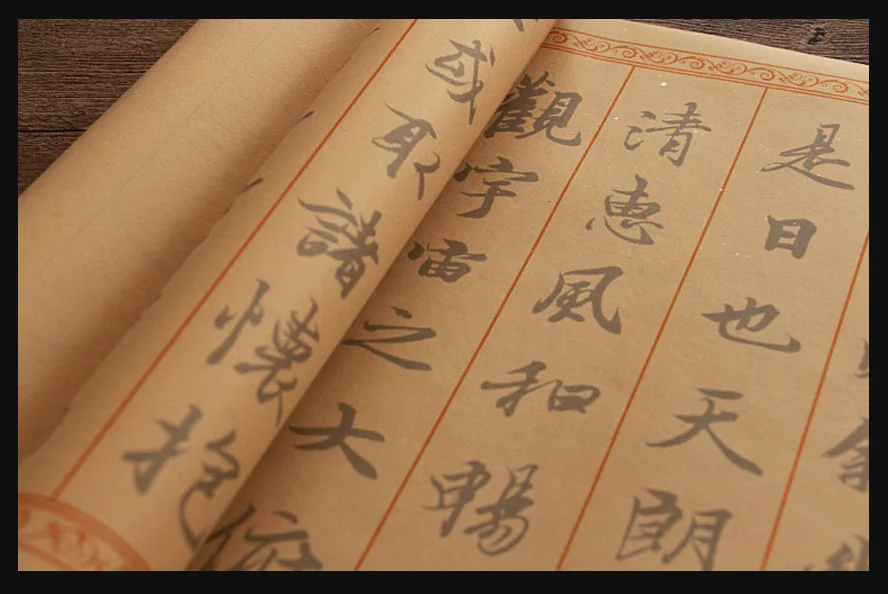 是日也天朗
清惠風和暢
觀宇宙之大俯
或取諸懷抱